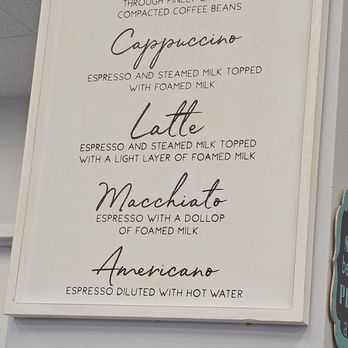 THROUGH FINELY
COMPACTED COFFEE BEANS
Cappuccino
ESPRESSO AND STEAMED MILK TOPPED
WITH FOAMED MILK
Latte
ESPRESSO AND STEAMED MILK TOPPED
WITH A LIGHT LAYER OF FOAMED MILK
Macchiato
ESPRESSO WITH A DOLLOP
OF FOAMED MILK
Americano
ESPRESSO DILUTED WITH HOT WATER